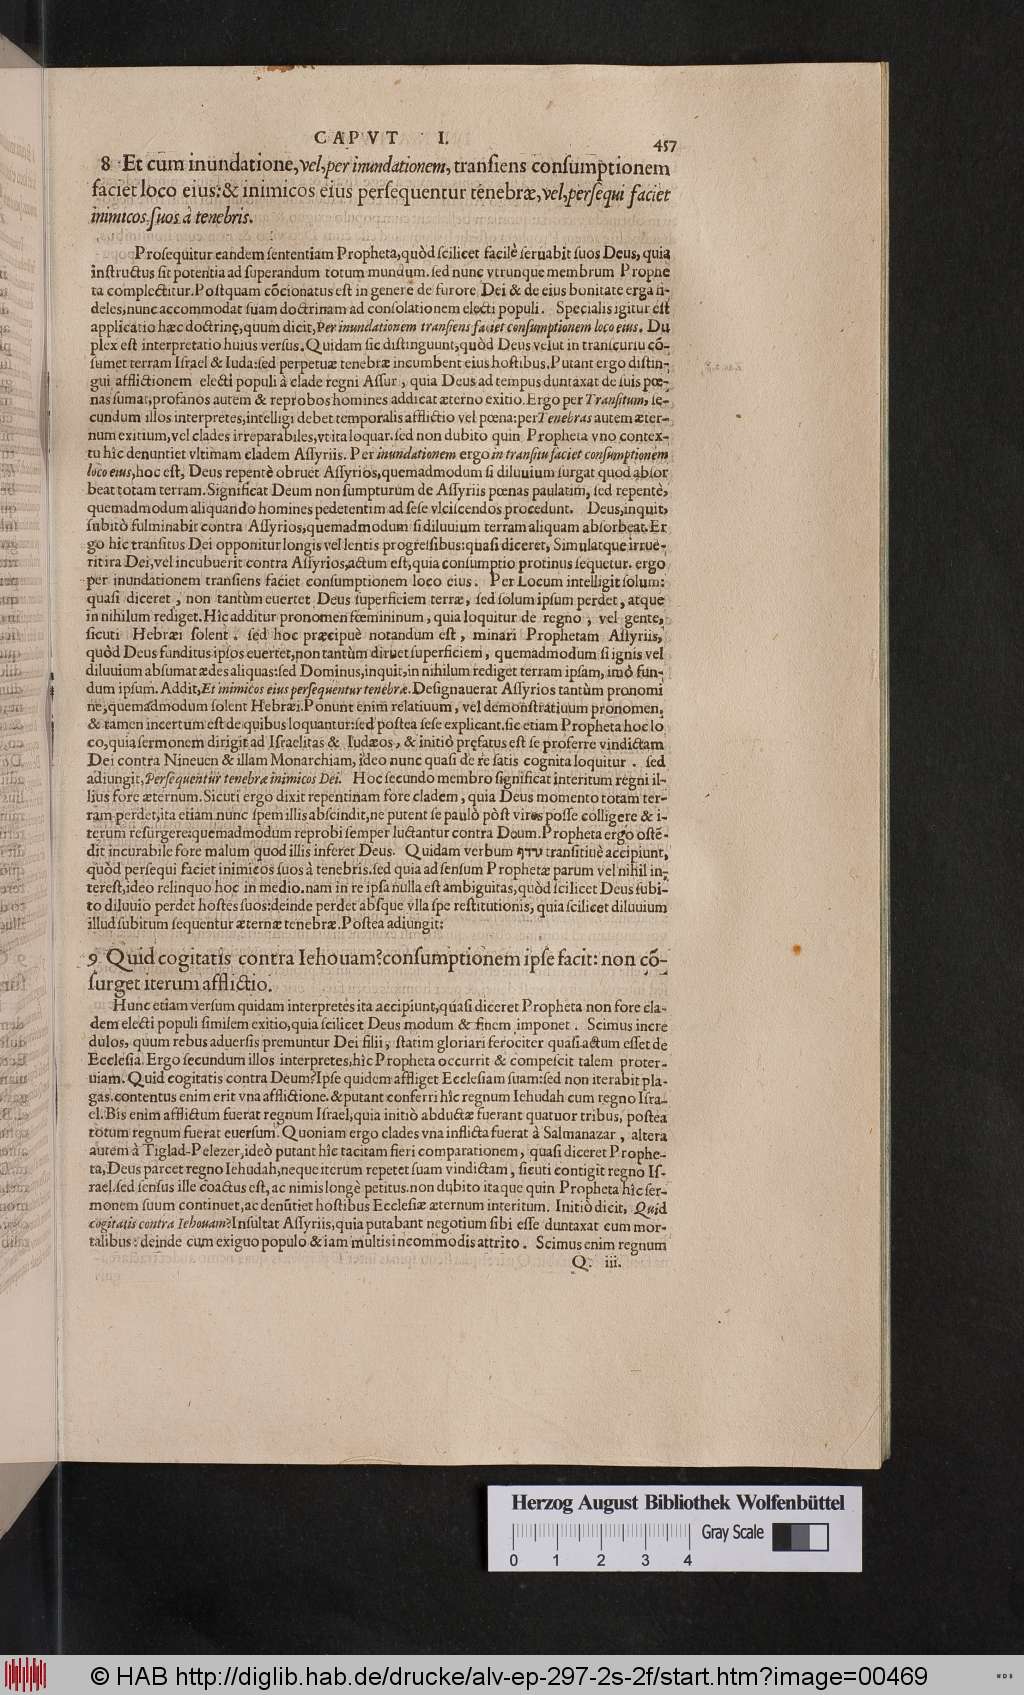 CAPVT I.
457
8 Et cum inundatione, vel, per inundationem, transiens consumptionem
faciet loco eius: & inimicos eius persequentur tenebræ, vel, persequi faciet
inimicos suos à tenebris.
Prosequitur eandem sententiam Propheta, quòd scilicet facilè seruabit suos Deus, quia
instructus sit potentia ad superandum totum mundum. sed nunc vtrunque membrum Prophe
ta complectitur. Postquam cōcionatus est in genere de furore Dei & de eius bonitate erga fi-
deles, nunc accommodat suam doctrinam ad consolationem electi populi. Specialis igitur est
applicatio hæc doctrinę, quum dicit, Per inundationem transiens faciet consumptionem loco eius. Du
plex est interpretatio huius versus. Quidam sic distinguunt, quòd Deus velut in transcursu cō-
sumet terram Israel & Iuda: sed perpetuæ tenebræ incumbent eius hostibus. Putant ergo distin-
gui afflictionem electi populi à clade regni Assur, quia Deus ad tempus duntaxat de suis pœ-
nas sumat, profanos autem & reprobos homines addicat æterno exitio. Ergo per Transitum, se-
cundum illos interpretes, intelligi debet temporalis afflictio vel pœna: per Tenebras autem æter-
num exitium, vel clades irreparabiles, vt ita loquar. sed non dubito quin Propheta vno contex-
tu hîc denuntiet vltimam cladem Assyriis. Per inundationem ergo in transitu faciet consumptionem
loco eius, hoc est, Deus repentè obruet Assyrios, quemadmodum si diluuium surgat quod absor
beat totam terram. Significat Deum non sumpturum de Assyriis pœnas paulatim, sed repentè,
quemadmodum aliquando homines pedetentim ad sese vlciscendos procedunt. Deus, inquit,
subitò fulminabit contra Assyrios, quemadmodum si diluuium terram aliquam absorbeat. Er
go hîc transitus Dei opponitur longis vel lentis progressibus: quasi diceret, Simulatque irrue-
rit ira Dei, vel incubuerit contra Assyrios, actum est, quia consumptio protinus sequetur. ergo
per inundationem transiens faciet consumptionem loco eius. Per Locum intelligit solum:
quasi diceret, non tantùm euertet Deus superficiem terræ, sed solum ipsum perdet, atque
in nihilum rediget. Hîc additur pronomen fœmininum, quia loquitur de regno, vel gente,
sicuti Hebræi solent. sed hoc præcipuè notandum est, minari Prophetam Assyriis,
quòd Deus funditus ipsos euertet, non tantùm diruet superficiem, quemadmodum si ignis vel
diluuium absumat ædes aliquas: sed Dominus, inquit, in nihilum rediget terram ipsam, imò fun-
dum ipsum. Addit, Et inimicos eius persequentur tenebræ. Designauerat Assyrios tantùm pronomi
ne, quemadmodum solent Hebræi. Ponunt enim relatiuum, vel demonstratiuum pronomen,
& tamen incertum est de quibus loquantur: sed postea sese explicant. sic etiam Propheta hoc lo
co, quia sermonem dirigit ad Israelitas & Iudæos, & initiò pręfatus est se proferre vindictam
Dei contra Nineuen & illam Monarchiam, ideo nunc quasi de re satis cognita loquitur. sed
adiungit, Persequentur tenebræ inimicos Dei. Hoc secundo membro significat interitum regni il-
lius fore æternum. Sicuti ergo dixit repentinam fore cladem, quia Deus momento totam ter-
ram perdet, ita etiam nunc spem illis abscindit, ne putent se paulò pòst vires posse colligere & i-
terum resurgere: quemadmodum reprobi semper luctantur contra Deum. Propheta ergo ostē-
dit incurabile fore malum quod illis inferet Deus. Quidam verbum ירדף transitiuè accipiunt,
quòd persequi faciet inimicos suos à tenebris. sed quia ad sensum Prophetæ parum vel nihil in-
terest, ideo relinquo hoc in medio. nam in re ipsa nulla est ambiguitas, quòd scilicet Deus subi-
to diluuio perdet hostes suos: deinde perdet absque vlla spe restitutionis, quia scilicet diluuium
illud subitum sequentur æternæ tenebræ. Postea adiungit:
9 Quid cogitatis contra Iehouam? consumptionem ipse facit: non cō-
surget iterum afflictio.
Hunc etiam versum quidam interpretes ita accipiunt, quasi diceret Propheta non fore cla-
dem electi populi similem exitio, quia scilicet Deus modum & finem imponet. Scimus incre
dulos, quum rebus aduersis premuntur Dei filii, statim gloriari ferociter quasi actum esset de
Ecclesia. Ergo secundum illos interpretes, hîc Propheta occurrit & compescit talem proter-
uiam. Quid cogitatis contra Deum? Ipse quidem affliget Ecclesiam suam: sed non iterabit pla-
gas. contentus enim erit vna afflictione. & putant conferri hîc regnum Iehudah cum regno Isra-
el. Bis enim afflictum fuerat regnum Israel, quia initiò abductæ fuerant quatuor tribus, postea
totum regnum fuerat euersum. Quoniam ergo clades vna inflicta fuerat à Salmanazar, altera
autem à Tiglad-Pelezer, ideò putant hîc tacitam fieri comparationem, quasi diceret Prophe-
ta, Deus parcet regno Iehudah, neque iterum repetet suam vindictam, sicuti contigit regno Is-
rael. sed sensus ille coactus est, ac nimis longè petitus. non dubito itaque quin Propheta hîc ser-
monem suum continuet, ac denūtiet hostibus Ecclesiæ æternum interitum. Initiò dicit, Quid
cogitatis contra Iehouam? Insultat Assyriis, quia putabant negotium sibi esse duntaxat cum mor-
talibus: deinde cum exiguo populo & iam multis incommodis attrito. Scimus enim regnum
Q. iii.
Herzog August Bibliothek Wolfenbüttel
Gray Scale
0 1 2 3 4
© HAB http://diglib.hab.de/drucke/alv-ep-297-2s-2f/start.htm?image=00469
WDB